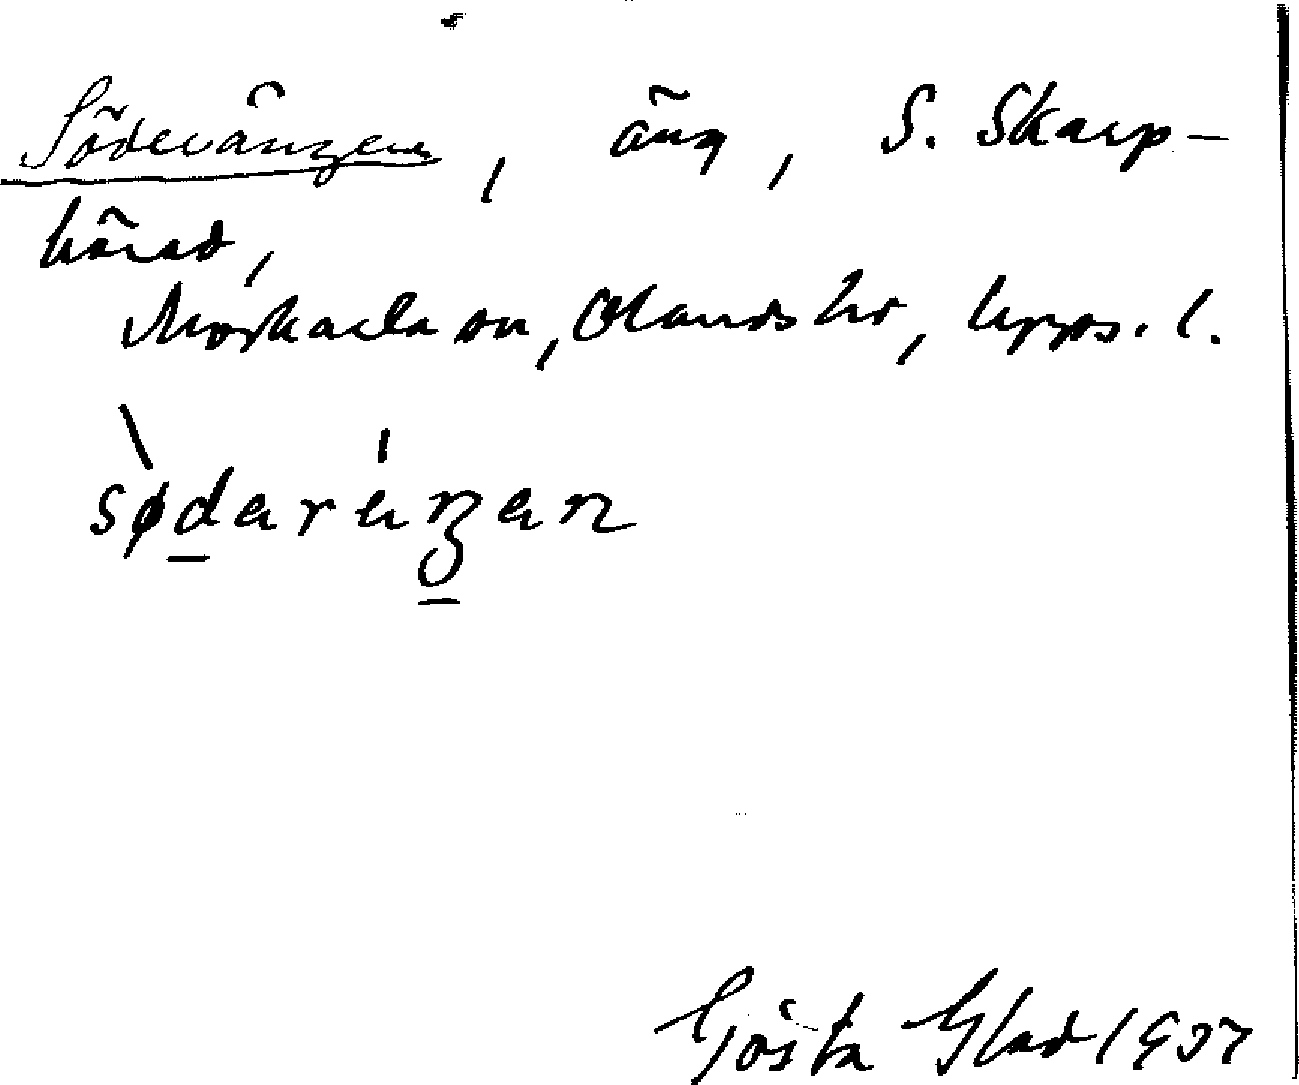 Söderängen, äng, S. Skarp-
härad,
Morkarla sn, Olands hd, Upps. l.
sødaräŋen
Gösta Glad 1937